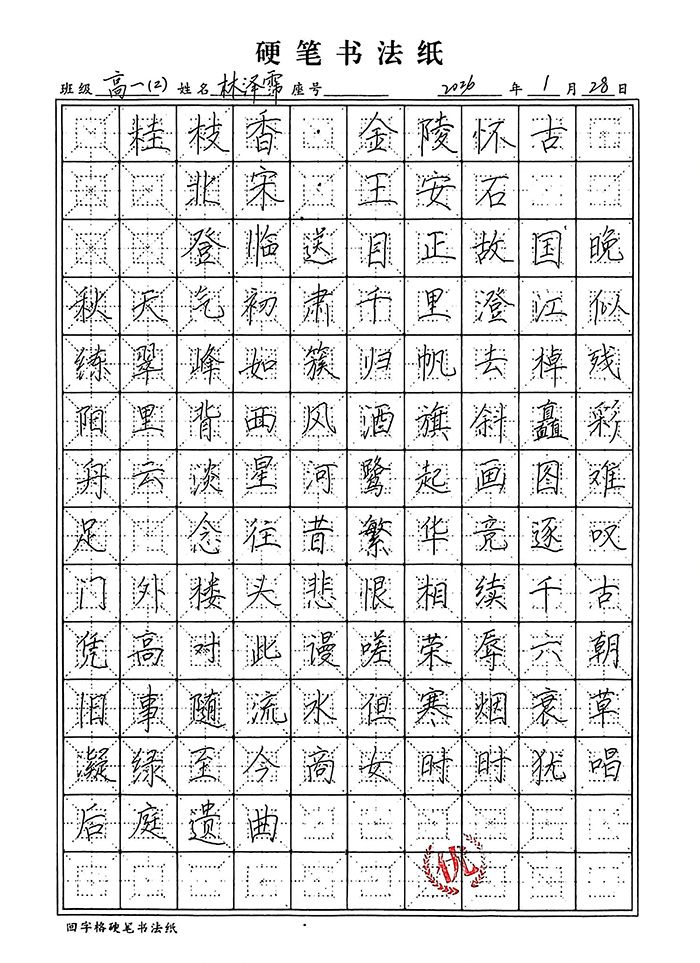 硬笔书法纸
班级 高一(2) 姓名 林泽霈 座号 2026 年 1 月 28 日
桂枝香·金陵怀古
北宋·王安石
登临送目正故国晚
秋天气初肃千里澄江似
练翠峰如簇归帆去棹残
阳里背西风酒旗斜矗彩
舟云淡星河鹭起画图难
足 念往昔繁华竞逐叹
门外楼头悲恨相续千古
凭高对此谩嗟荣辱六朝
旧事随流水但寒烟衰草
凝绿至今商女时时犹唱
后庭遗曲
优
回字格硬笔书法纸